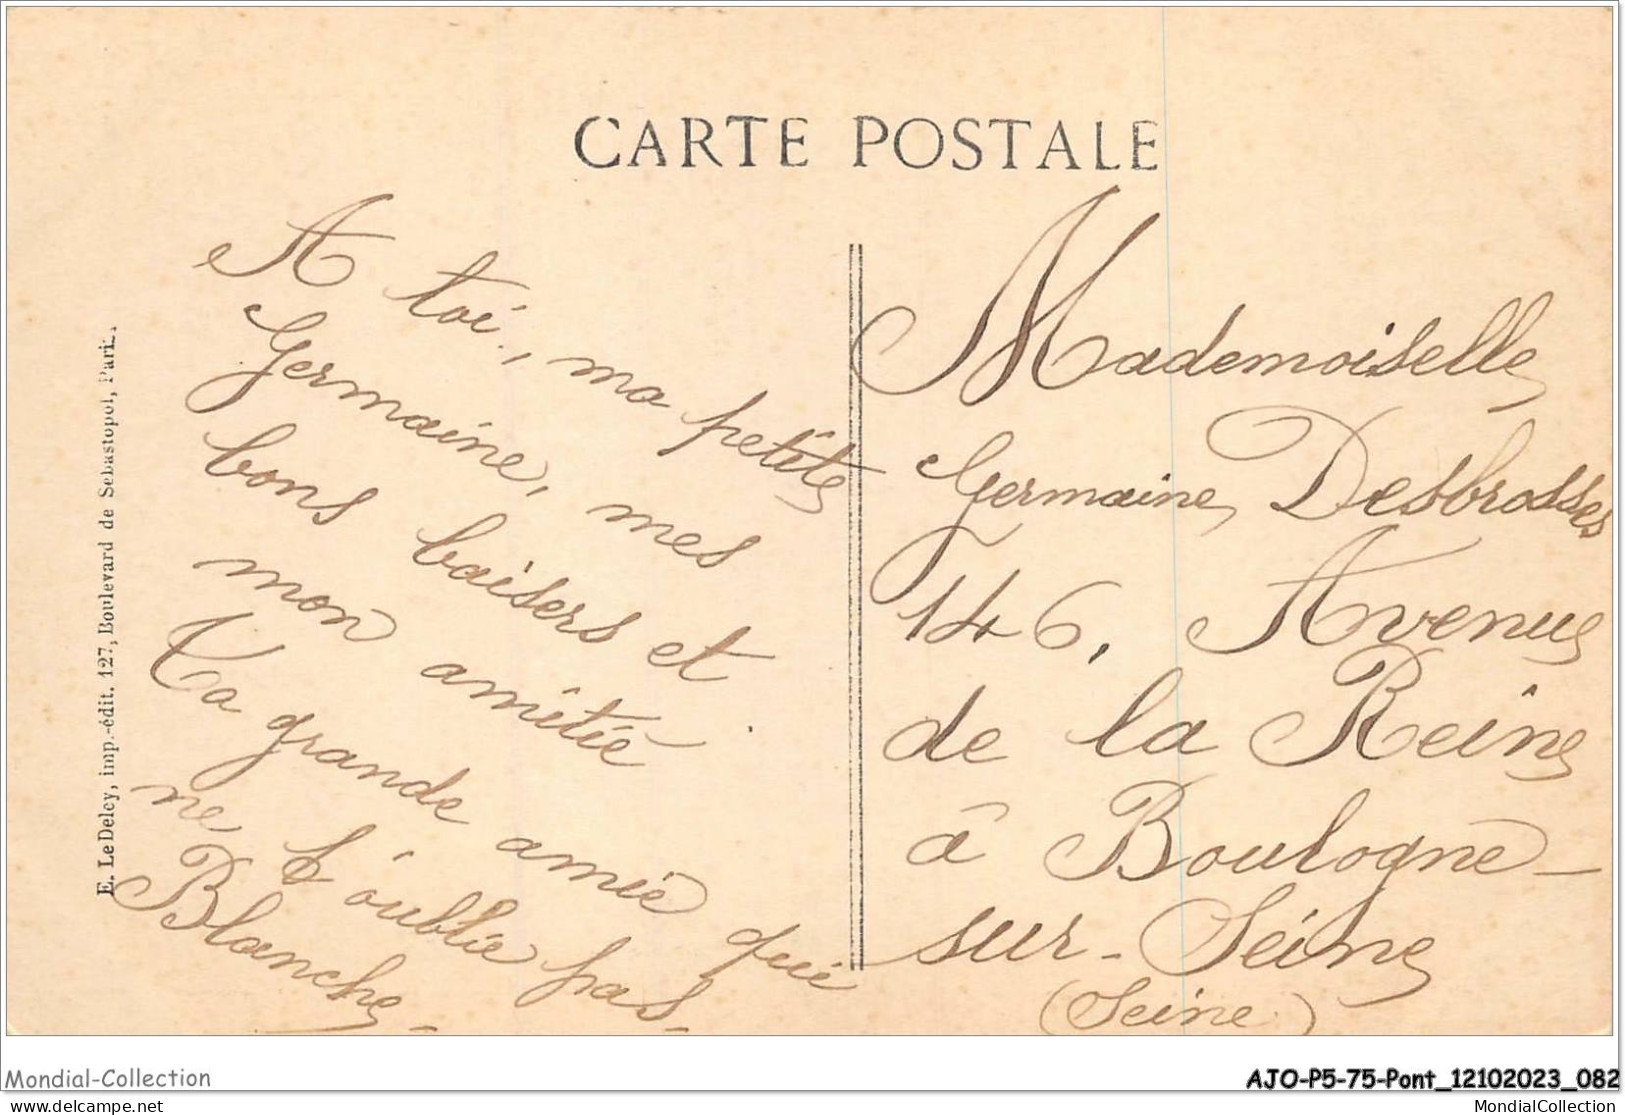 CARTE POSTALE
A toi, ma petite
Germaine, mes
bons baisers et
mon amitié.
Ta grande amie qui
ne t'oublie pas -
Blanche -
Mademoiselle
Germaine Desbrosses
146, Avenue
de la Reine
à Boulogne -
sur - Seine
(Seine)
E. Le Deley, imp.-édit. 127, Boulevard de Sébastopol, Paris.
Mondial-Collection
AJO-P5-75-Pont_12102023_082
delcampe.net
MondialCollection